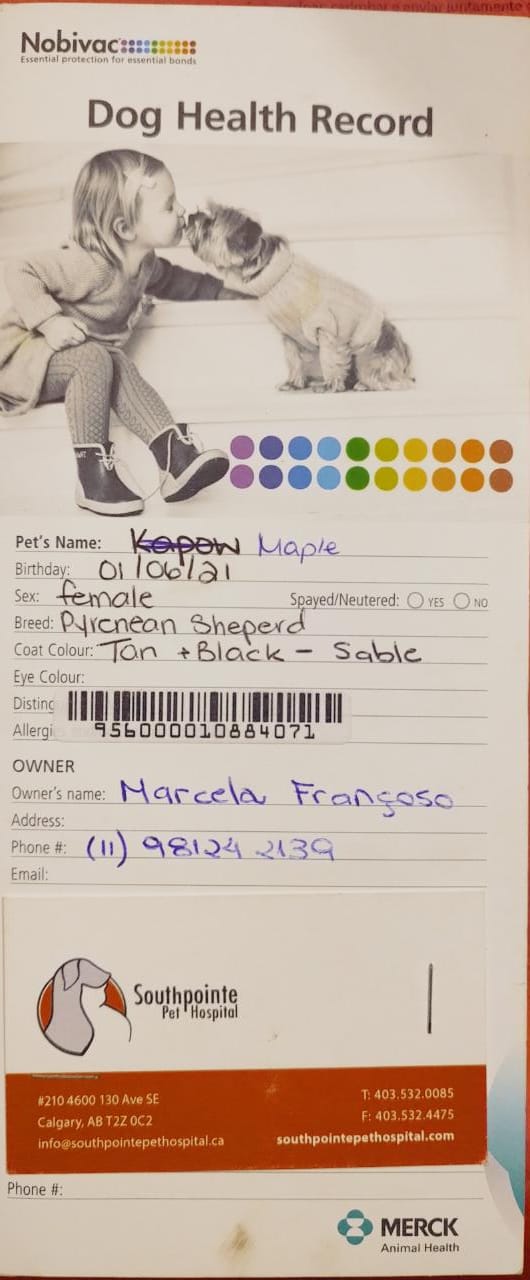 Nobivac
Essential protection for essential bonds
Dog Health Record
Pet's Name: Kapow Maple
Birthday: 01/06/21
Sex: female Spayed/Neutered: YES NO
Breed: Pyrenean Sheperd
Coat Colour: Tan + Black - Sable
Eye Colour:
Disting
Allergi
956000010884071
OWNER
Owner's name: Marcela Françoso
Address:
Phone #: (11) 98124 2139
Email:
Southpointe
Pet Hospital
#210 4600 130 Ave SE T: 403.532.0085
Calgary, AB T2Z 0C2 F: 403.532.4475
info@southpointepethospital.ca southpointepethospital.com
Phone #:
MERCK
Animal Health